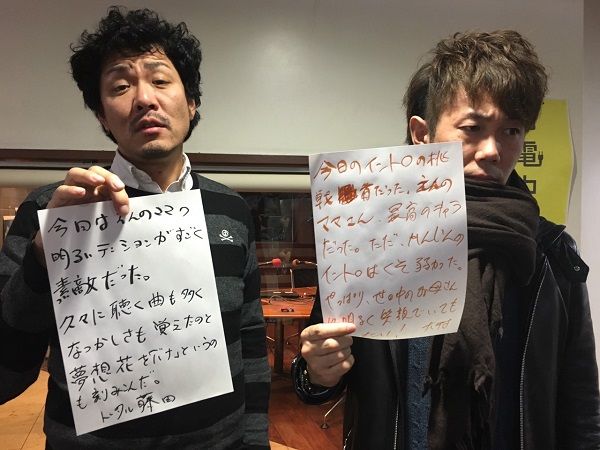 今回は えんのママの
明るいテンションがすごく
素敵だった。
久々に聴く曲も多く
なつかしさも覚えたのと
夢想花を「だけ」というの
も刻みこんだ。
トータル藤田
今日のイントロの挑
戦 者だった、えんの
ママさん、最高のキャラ
だった。ただ、かんじんの
イントロはくそ弱かった。
やっぱり、世の中のお母さん
は明るく失敗していても
電力